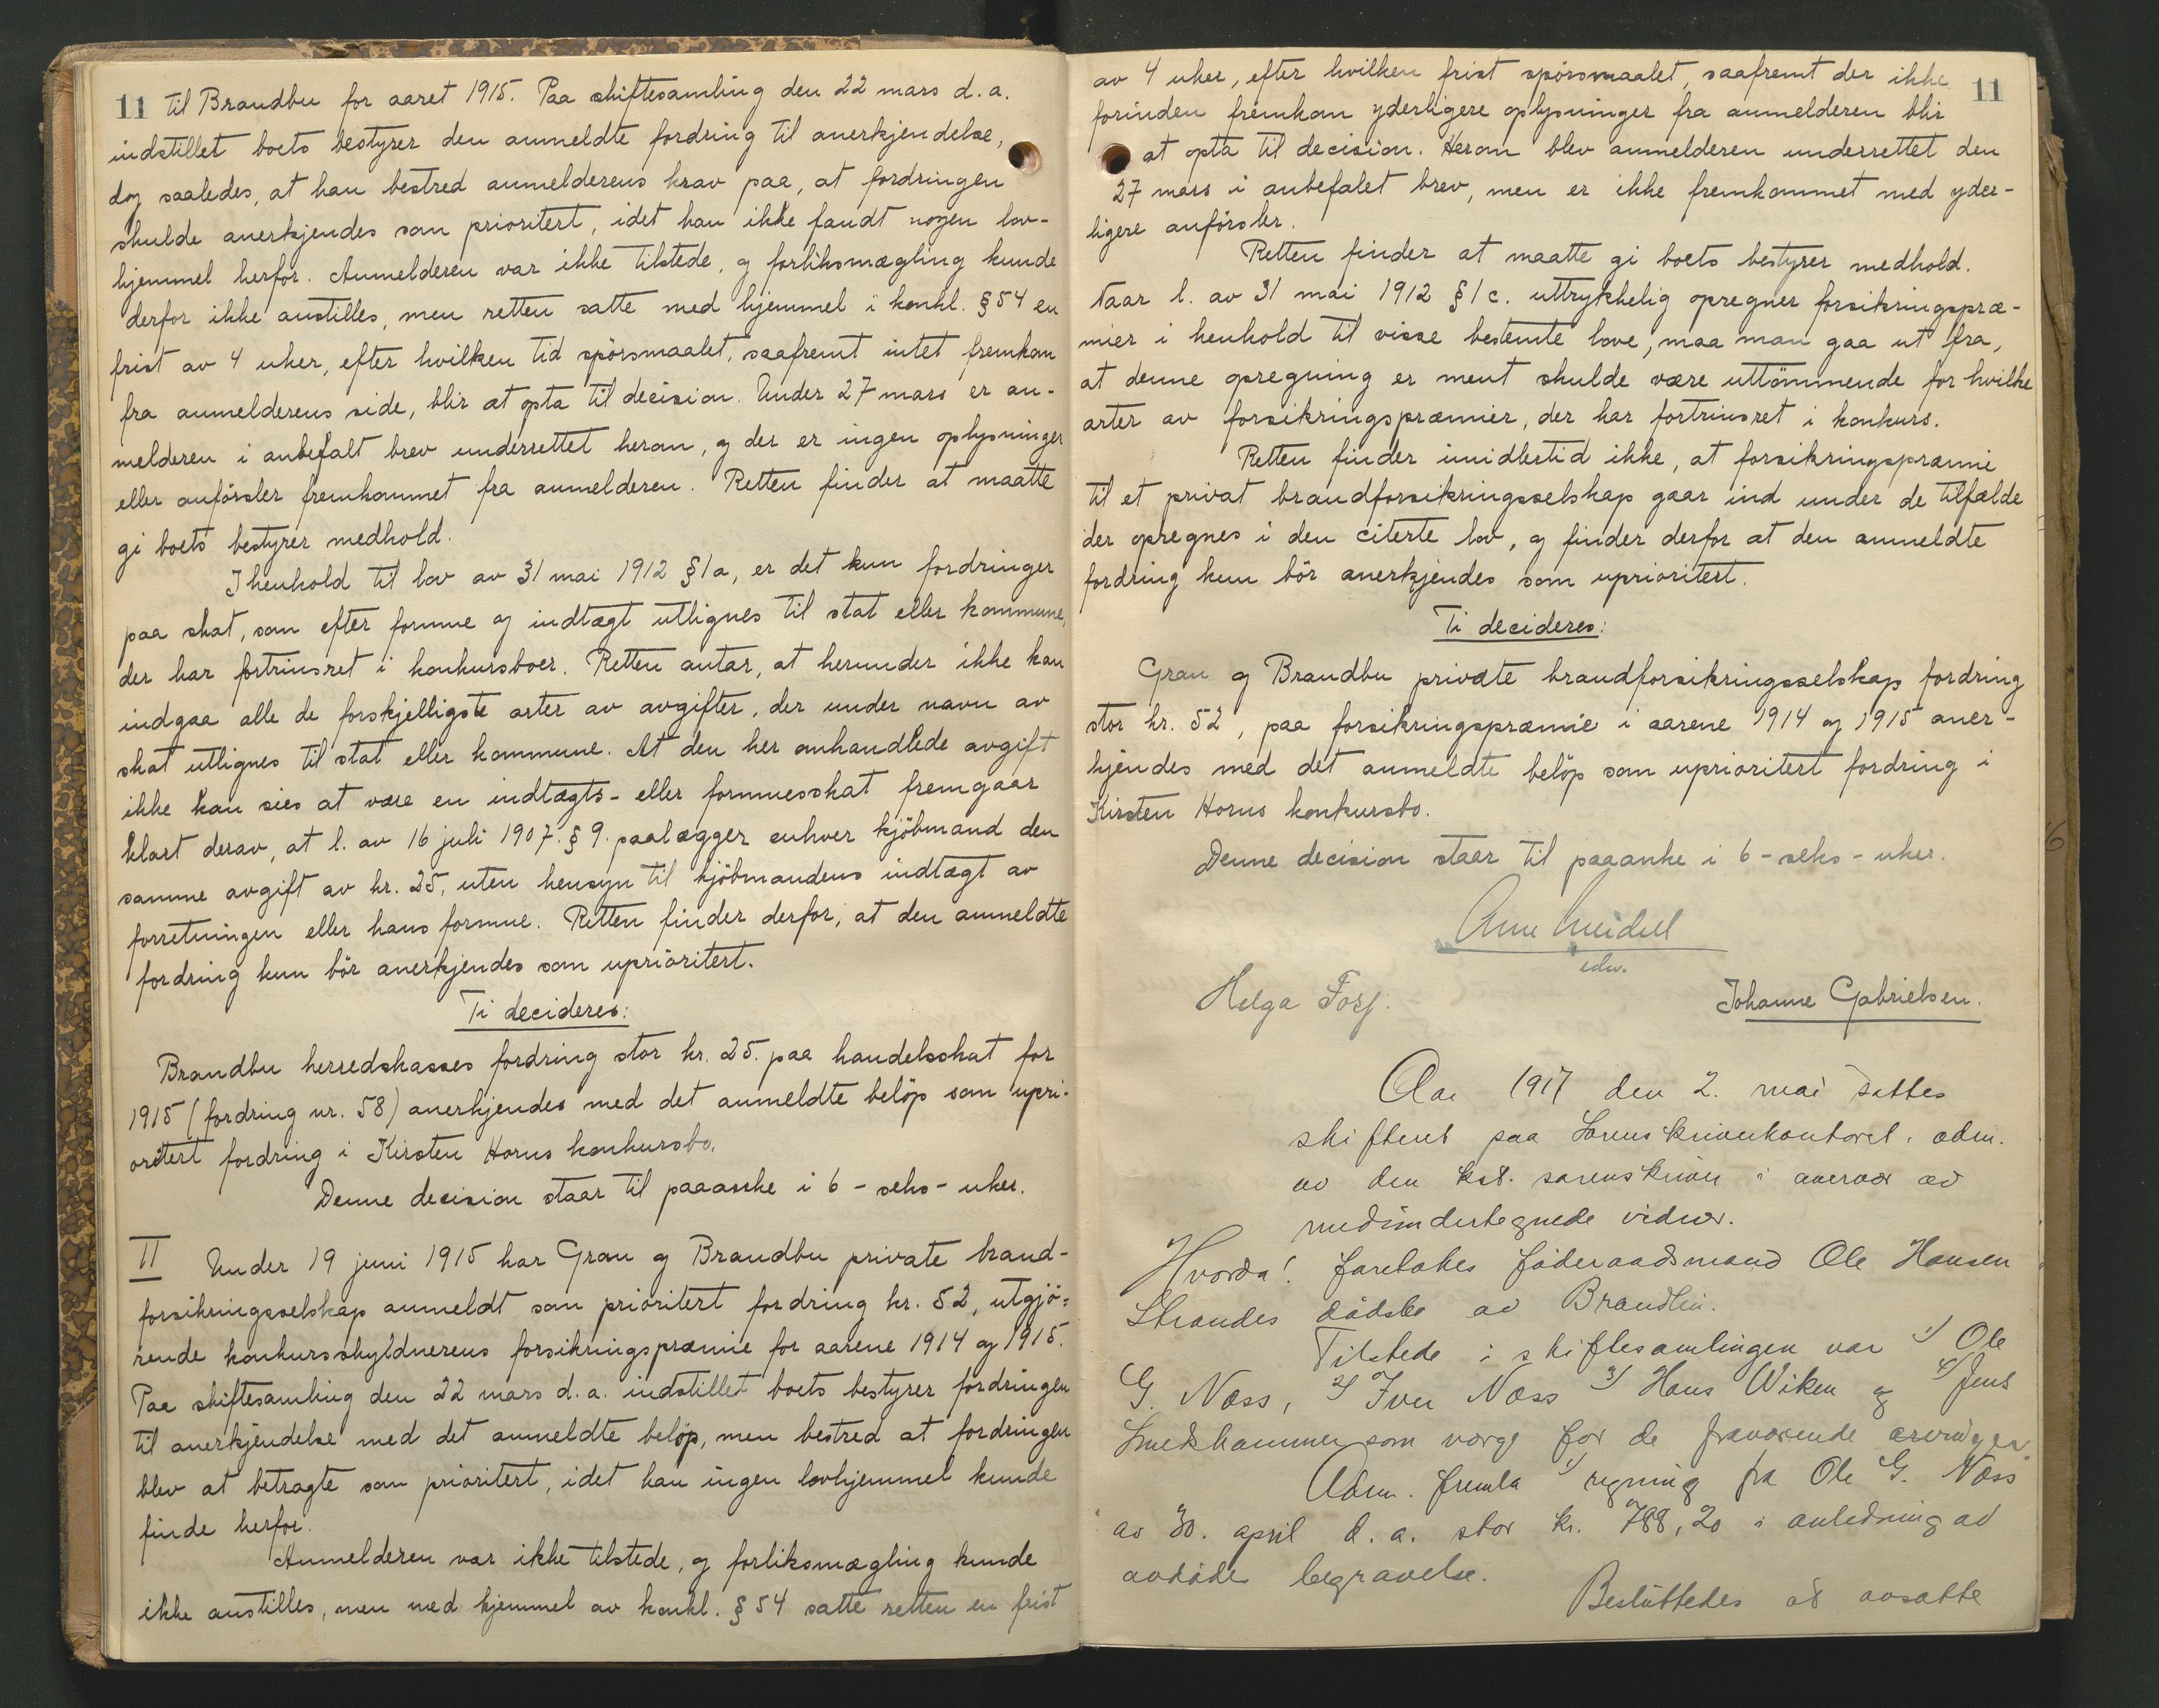 11 til Brandbu for aaret 1915. Paa skiftesamling den 22 mars d. a.
indstillet boets bestyrer den anmeldte fordring til anerkjendelse,
dog saaledes, at han bestred anmelderens krav paa, at fordringen
skulde anerkjendes som prioritert, idet han ikke fandt nogen lov-
hjemmel herfor. Anmelderen var ikke tilstede, og forliksmægling kunde
derfor ikke anstilles, men retten satte med hjemmel i konkl. § 54 en
frist av 4 uker, efter hvilken tid spörsmaalet, saafremt intet fremkom
fra anmelderens side, blir at opta til decision. Under 27 mars er an-
melderen i anbefalt brev underrettet herom, og der er ingen oplysninger
eller anförsler fremkommet fra anmelderen. Retten finder at maatte
gi boets bestyrer medhold.
I henhold til lov av 31 mai 1912 § 1 a, er det kun fordringer
paa skat, som efter formue og indtægt utlignes til stat eller kommune,
der har fortrinsret i konkursboer. Retten antar, at herunder ikke kan
indgaa alle de forskjelligste arter av avgifter, der under navn av
skat utlignes til stat eller kommune. At den her omhandlede avgift
ikke kan sies at være en indtægts- eller formuesskat fremgaar
klart derav, at l. av 16 juli 1907. § 9. paalægger enhver kjöbmand den
samme avgift av kr. 25, uten hensyn til kjöbmandens indtægt av
forretningen eller hans formue. Retten finder derfor, at den anmeldte
fordring kun bör anerkjendes som uprioritert.
Ti decideres:
Brandbu herredskasses fordring stor kr. 25. paa handelsskat for
1915 (fordring nr. 58) anerkjendes med det anmeldte belöp som upri-
oritert fordring i Kirsten Horns konkursbo.
Denne decision staar til paaanke i 6 - seks - uker.
II Under 19 juni 1915 har Gran og Brandbu private brand-
forsikringsselskap anmeldt som prioritert fordring kr. 52, utgjö-
rende konkursskyldnerens forsikringspræmie for aarene 1914 og 1915.
Paa skiftesamling den 22 mars d. a. indstillet boets bestyrer fordringen
til anerkjendelse med det anmeldte belöp, men bestred at fordringen
blev at betragte som prioritert, idet han ingen lovhjemmel kunde
finde herfor.
Anmelderen var ikke tilstede, og forliksmægling kunde
ikke anstilles, men med hjemmel av konkl. § 54 satte retten en frist
11
av 4 uker, efter hvilken frist spörsmaalet, saafremt der ikke
forinden fremkom yderligere oplysninger fra anmelderen blir
at opta til decision. Herom blev anmelderen underrettet den
27 mars i anbefalet brev, men er ikke fremkommet med yder-
ligere anförsler.
Retten finder at maatte gi boets bestyrer medhold.
Naar l. av 31 mai 1912 § 1 c. uttrykkelig opregner forsikringspræ-
mier i henhold til visse bestemte love, maa man gaa ut fra,
at denne opregning er ment skulde være uttömmende for hvilke
arter av forsikringspræmier, der har fortrinsret i konkurs.
Retten finder imidlertid ikke, at forsikringspræmie
til et privat brandforsikringsselskap gaar ind under de tilfælde
der opregnes i den citerte lov, og finder derfor at den anmeldte
fordring kun bör anerkjendes som uprioritert.
Ti decideres:
Gran og Brandbu private brandforsikringsselskap fordring
stor kr. 52, paa forsikringspræmie i aarene 1914 og 1915 aner-
kjendes med det anmeldte belöp som uprioritert fordring i
Kirsten Horns konkursbo.
Denne decision staar til paaanke i 6 - seks - uker.
Arne Meidell
edv.
Helga Forf. Johanne Gabrielsen.
Aar 1917 den 2. mai sattes
skifteret paa Sorenskriverkontoret, adm.
av den kst. sorenskriver i nærvær av
medundertegnede vidner.
Hvorda! foretokes föderaadsmand Ole Hansen
Strandes dödsbo av Brandbu.
Tilstede i skiftesamlingen var 1) Ole
G. Næss, 2) Iver Næss 3) Hans Wiken og 4) Jens
Smedshammer som verge for de fraværende arvinger.
Adm. fremla 1) regning fra Ole G. Næss
av 30. april d. a. stor kr. 788,20 i anledning av
avdödes begravelse.
Besluttedes at avsatte